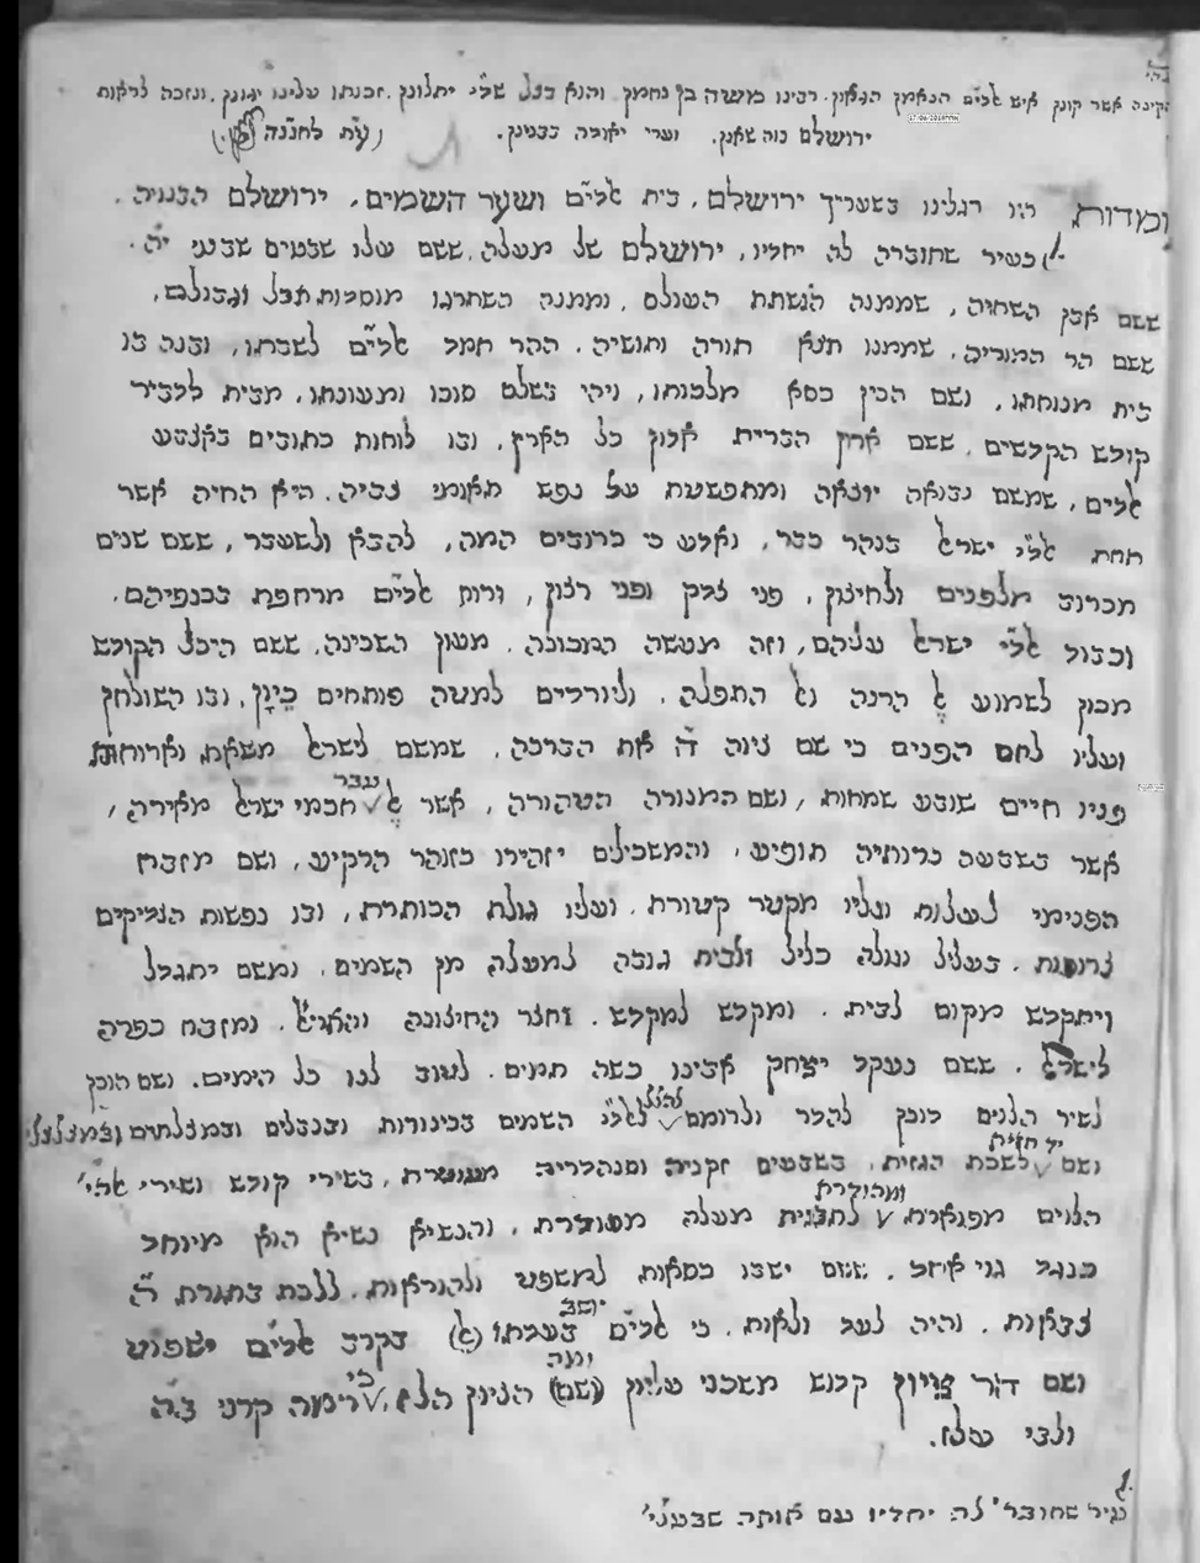 הקינה אשר קונן איש אלי"ם הנאמן הגאון רבינו משה בן נחמן והוא בצל שד"י יתלונן. זכותו עלינו יגונן. ונזכה לראות
ירושלם נוה שאנן. וערי יאודה כבנינן. (ע"ת לחננ"ה
עומדות היו רגלינו בשעריך ירושלם, בית אלי"ם ושער השמים, ירושלם הבנויה.
כעיר שחוברה לה יחדיו, ירושלם של מעלה, ששם עלו שבטים שבטי יה.
ששם אבן השתיה, שממנה הושתת העולם, וממנה השתרגו מוסדות תבל וגבולם,
ששם הר המוריה, שממנו תצא תורה ותושיה. ההר חמד אלי"ם לשבתו, ובנה בו
בית מנוחתו, ושם הכין כסא מלכותו, ויהי בשלם סוכו ומעונתו, מבית לדביר
קודש הקדשים, ששם ארון הברית אדון כל הארץ, ובו לוחות כתובים באצבע
אלים, שמשם נבואה יוצאה ומתפשטת על נפש תאומי צביה. היא החיה אשר
תחת אלי"י ישראל בנהר כבר, ואדע כי כרובים המה, להבא ולשעבר, ששם שנים
מכרוב מלפנים ולחיצון, פני צדק ופני רצון, ורוח אלי"ם מרחפת בכנפיהם.
וכבוד אלי"י ישראל עליהם, וזה מעשה המכונה. מעון השכינה. ששם היכל הקודש
מכון לשמוע אל הרנה ואל התפלה. וליורדים למטה פותחים כיון, ובו השולחן
ועליו לחם הפנים כי שם ציוה ה' את הברכה. שמשם לישראל משאת וארוחות
פניו חיים שובע שמחות, ושם המנורה הטהורה, אשר אל עבר חכמי ישראל מאירה,
אשר בשבעה נרותיה תופיע, והמשכילים יזהירו כזוהר הרקיע, ושם מזבח
הפנימי לעלות ועליו מקטר קטורת. ועליו גולת הכותרת, ובו נפשות הצדיקים
צרורות. בעליל עולה כליל ולבית גובה למעלה מן השמים. ומשם יתגדל
ויתקדש מקום לבית. ומקדש למקדש. וחצר החיצונה והאריאל. ומזבח כפרה
לישראל. ששם נעקד יצחק אבינו כשה תמים. לטוב לנו כל הימים. ושם הוכן
לשיר הלוים דוכן להדר ולרומם להלל לאלי"י השמים בכינורות ובנבלים ובמצלתים ובמצלצלי
ושם יד חזית לשכת הגזית, בשבטים זקניה וסנהדריה מעוטרת, בשירי קודש ושירי אהי'
הלוים מפוארת ומהודרת לתבנית מעלה מסודרת, והנשיא נשיא הוא מיוחד
כנגד גוי אחד. ששם ישבו כסאות למשפט ולהוראות. ללכת בתורת ה'
צבאות. והיה לעד ולאות. כי אלי"ם יושב בעדתו (אל) בקרב אלי"ם ישפוט
ושם הר ציון קדוש משכני עליון (ושם) ומה הציון הלז, כי רימה קרני בה
ולבי עלז.
כעיר שחובר' לה יחדיו עם אותה שבעלי'